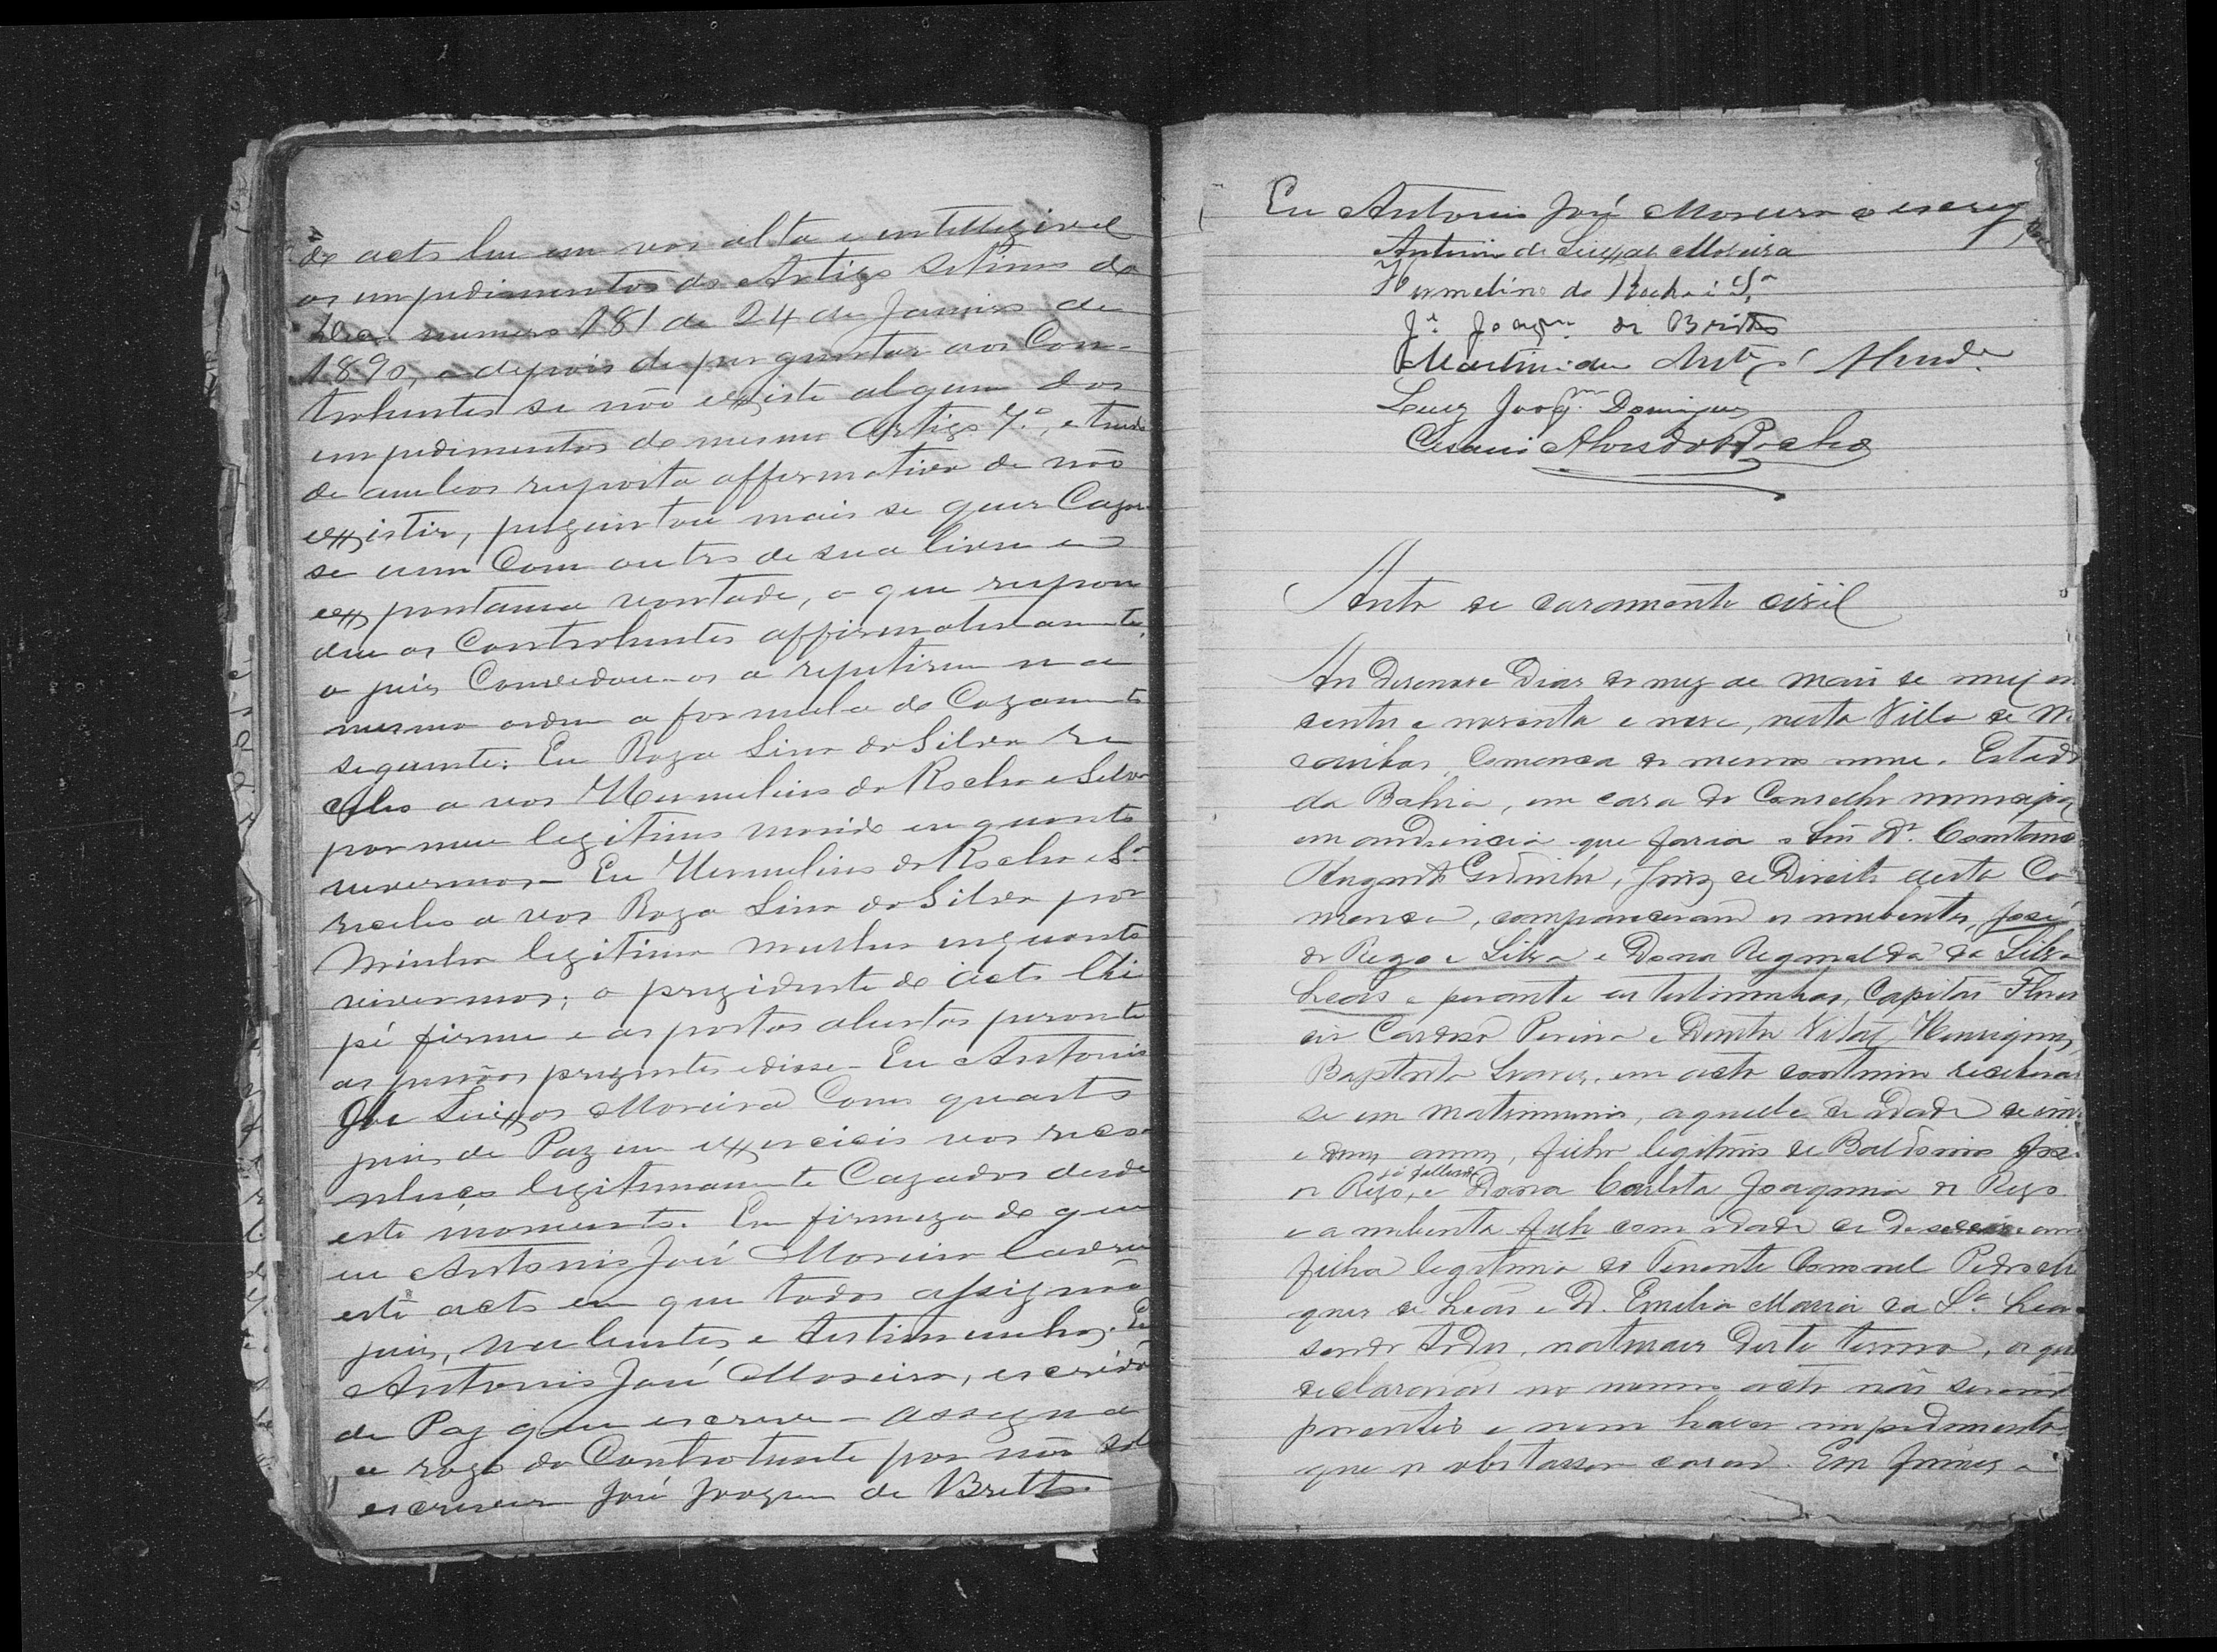 do acto leu em vos alta e entelligivel
os impedimentos do Artigo Setimo do
numero 181 de 24 de Janeiro de
1890, e depois de perguntar aos Con-
trahentes se não exxiste algum dos
impedimentos do mesmo Artigo 7º, e tendo
de ambos resposta affirmativa de não
exxistir, perguntou mais se quer Cazar
se um Com outro de sua livre e
exxpontanea vontade, o que respon
deu os Contrahentes affirmativamente,
o juis Convedou-os a repetirem na
mesma ordem a formula do Cazamento
seguinte: Eu Roza Lina da Silva re
cebo a vos Hermelino da Rocha e Silva
por meu legitimo marido enquanto
vivermos - Eu Hermelino da Rocha e Sª
recebo a vos Roza Lina da Silva por
Minha legitima mulher enquanto
vivermos; o prezidente do acto
pé firme e as portas abertas peronte
as pessôas prezentes e disse - Eu Antonio
de Seixxas Moreira Como quarto
juis de Paz em exxercicio vos reco
nheço legitimamente Cazados desde
este momento. Em firmeza do que
eu Antonio José Moreira lavrei
este acto em que todos assignão
juis, nubentes e testimunhas. Eu
Antonio José Moreira, escrivão
de Paz que escrevi - assigna
a rogo da Contratante por não saber
escrever José Joaquim de Britto
Eu Antonio José Moreira o escrevy
Antonio de Seixxas Moreira
Hermelino da Rocha i Sª
Jé Joaqm de Britto
Luiz Joaqm Domingues
Cesario Alves da Rocha
Auto de casamento civil
Aos desenove dias do mez de maio de mil oi
centos e noventa e nove, nesta Villa de Ma
caúbas, Comarca do mesmo nome, Estado
da Bahia, em casa do Conselho municipal
em audiencia que fazia o Snr Dr. Constancio
Augusto Godinho, Juiz de Direito desta Co
marca, compareceram os nubentes, José
do Rego e Silva e Dona Reginalda da Silva
Leão e perante as testimunhas, Capitão Floren
cio Cardoso Pereira e Doutor Vital Henriques
Baptista Soares, em acto continuo receberão
se em matrimonio, aquelle de idade de vin
e dous annos, filho legitimo de Baldoino José
já fallecido
do Rego, e Dona Carlota Joaquina do Rego
e a nubenta com idade de annos
filha legitima do Tenente Coronel Pedro Ma
ques de Leão e D. Emilia Maria da Sª Leão
sendo todos, naturaes deste termo, os que
declararão no mesmo acto não serem
parentes e nem haver impedimento
que os obstassem casar. Em firmeza